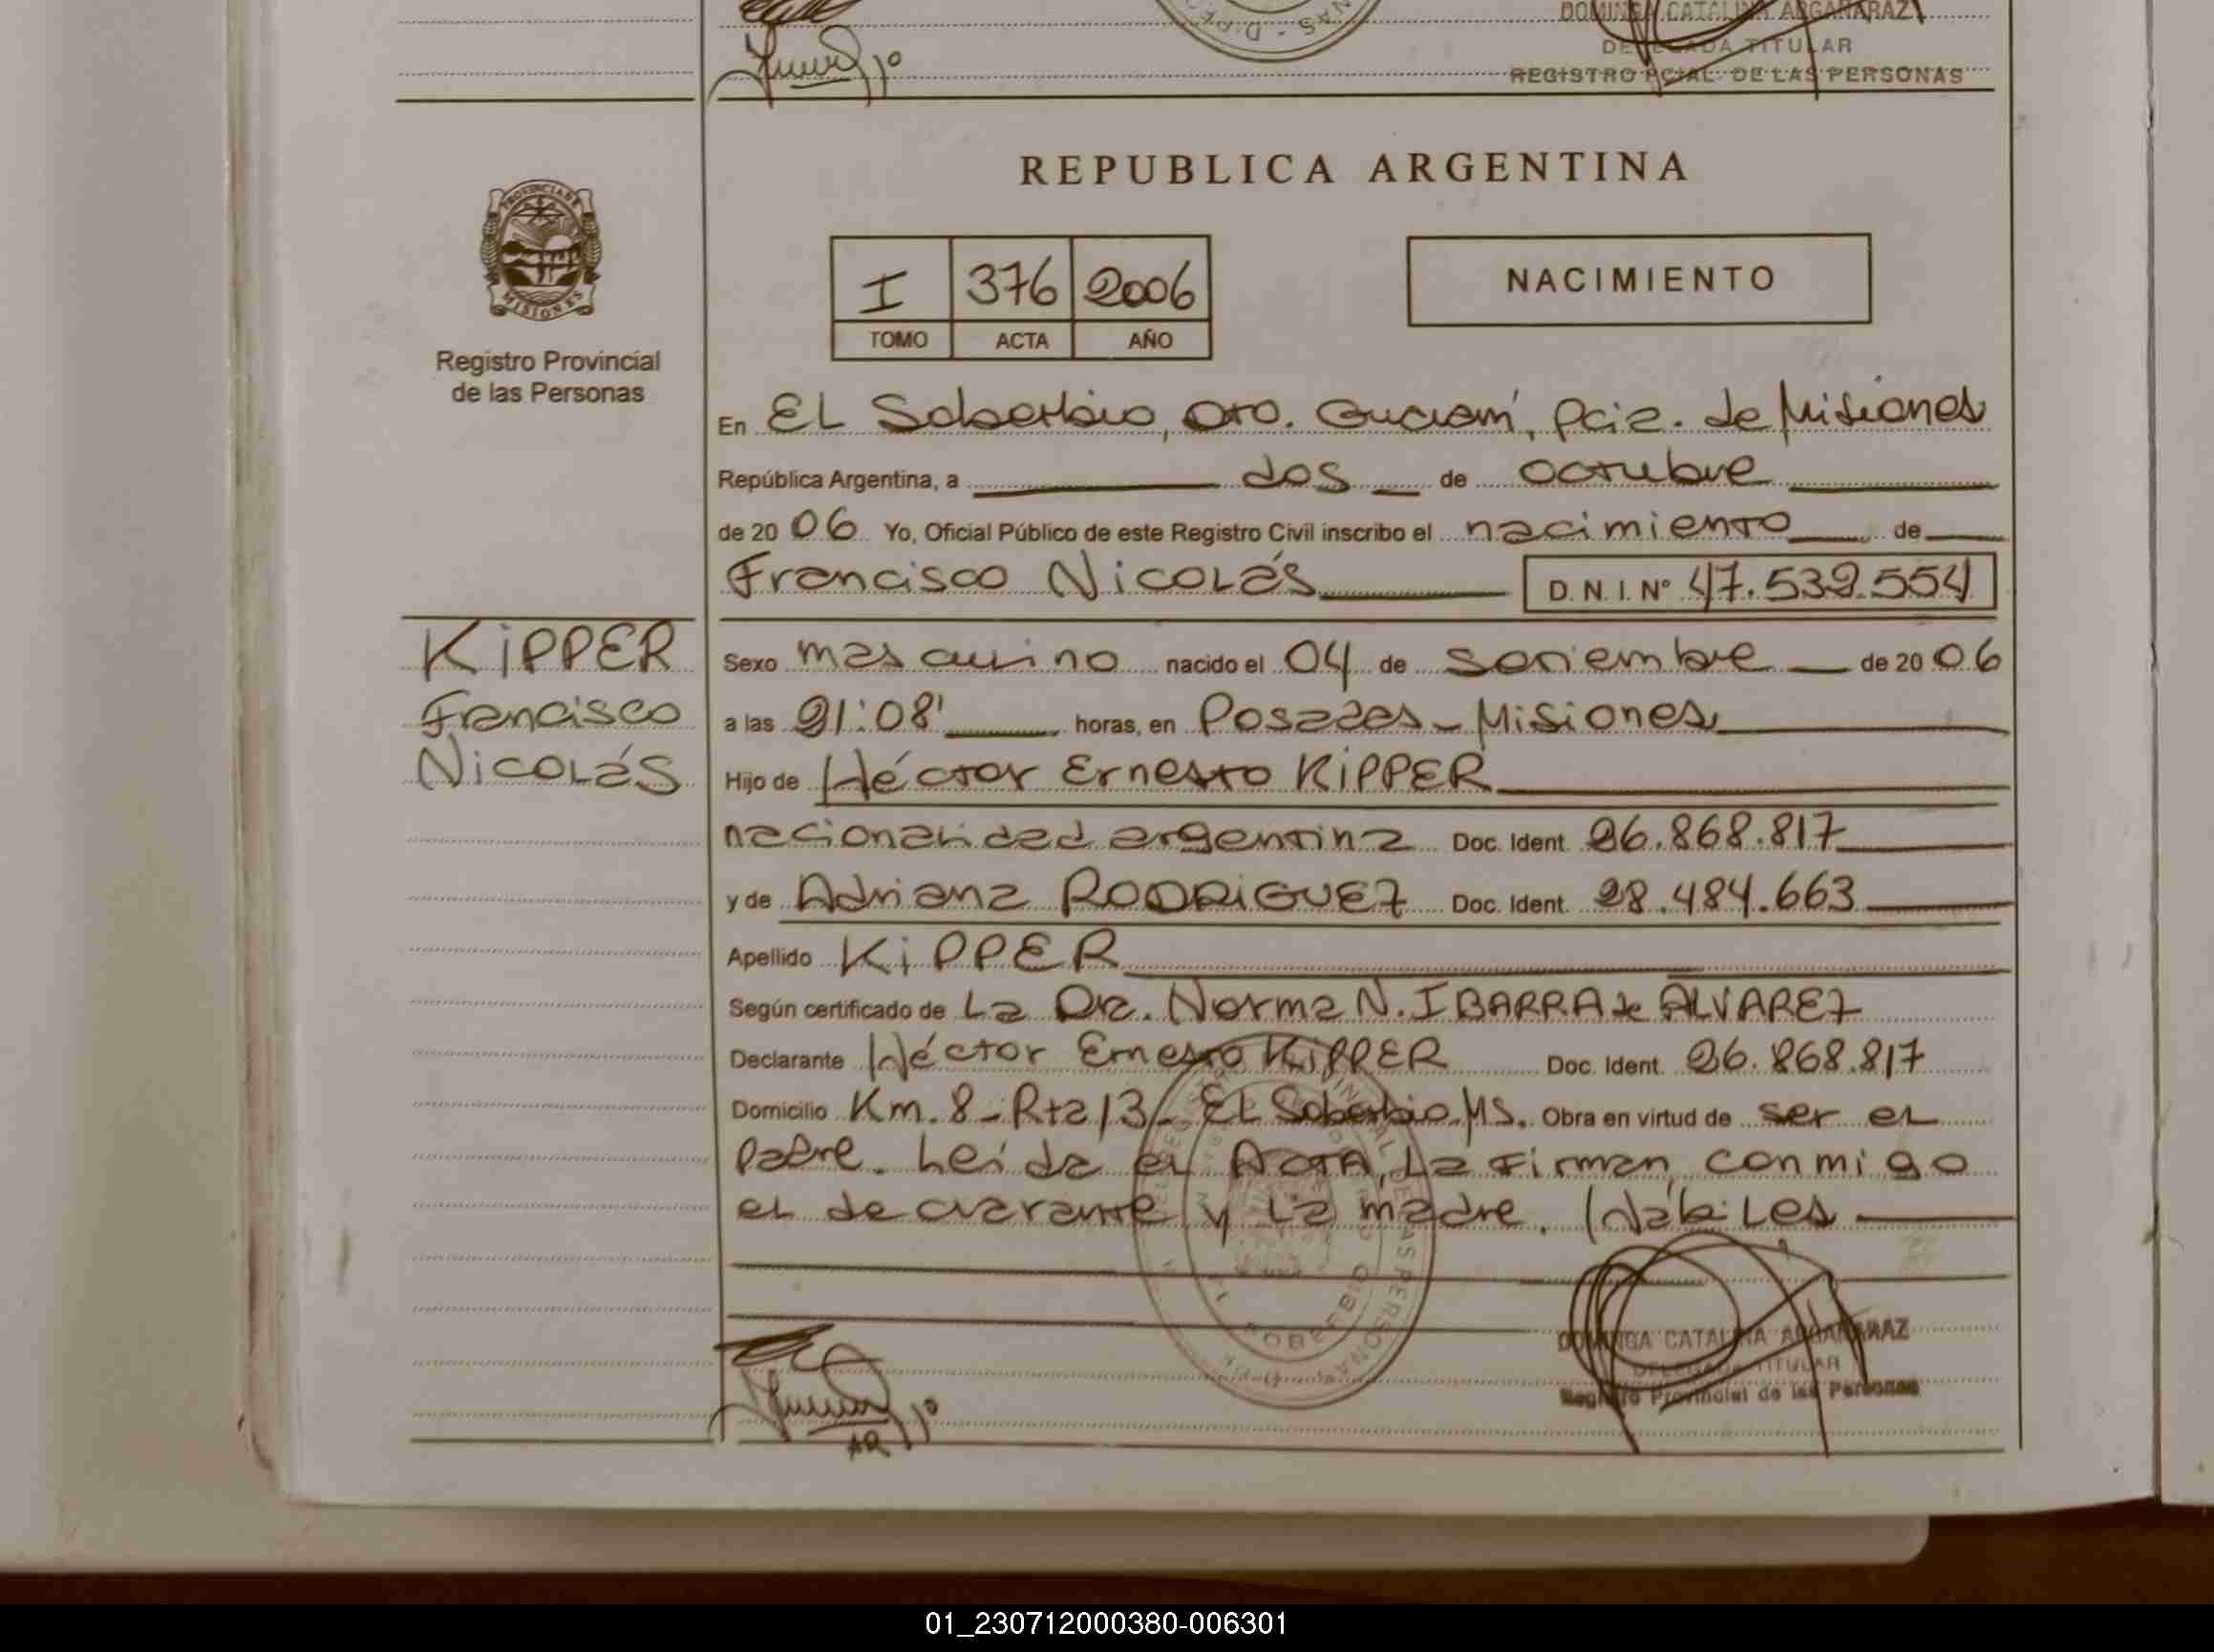 DOMINGA CATALINA ARGAÑARAZ
DELEGADA TITULAR
REGISTRO PCIAL. DE LAS PERSONAS
PROVINCIA DE
MISIONES
Registro Provincial
de las Personas
REPUBLICA ARGENTINA
I 376 2006
TOMO ACTA AÑO
NACIMIENTO
En EL Soberbio, Dto. Guaraní, Pcia. de Misiones
República Argentina, a dos de octubre
de 2006 Yo, Oficial Público de este Registro Civil inscribo el nacimiento de
Francisco Nicolás D. N. I. Nº 47.539.554
KiPPER
Francisco
Nicolás
Sexo masculino nacido el 04 de setiembre de 2006
a las 21:08' horas, en Posadas - Misiones
Hijo de Héctor Ernesto KiPPER
nacionalidad argentina Doc. Ident. 26.868.817
y de Adriana RODRiGUEZ Doc. Ident. 28.484.663
Apellido KiPPER
Según certificado de La Dra. Norma N. IBARRA de ALVAREZ
Declarante Héctor Ernesto KiPPER Doc. Ident. 26.868.817
Domicilio Km. 8 - Rta 13 - EL Soberbio. MS. Obra en virtud de ser el
padre. Leída el ACTA, La firman conmigo
el declarante y La madre. Hábiles
DOMINGA CATALINA ARGAÑARAZ
DELEGADA TITULAR
Registro Provincial de las Personas
AR
01_230712000380-006301